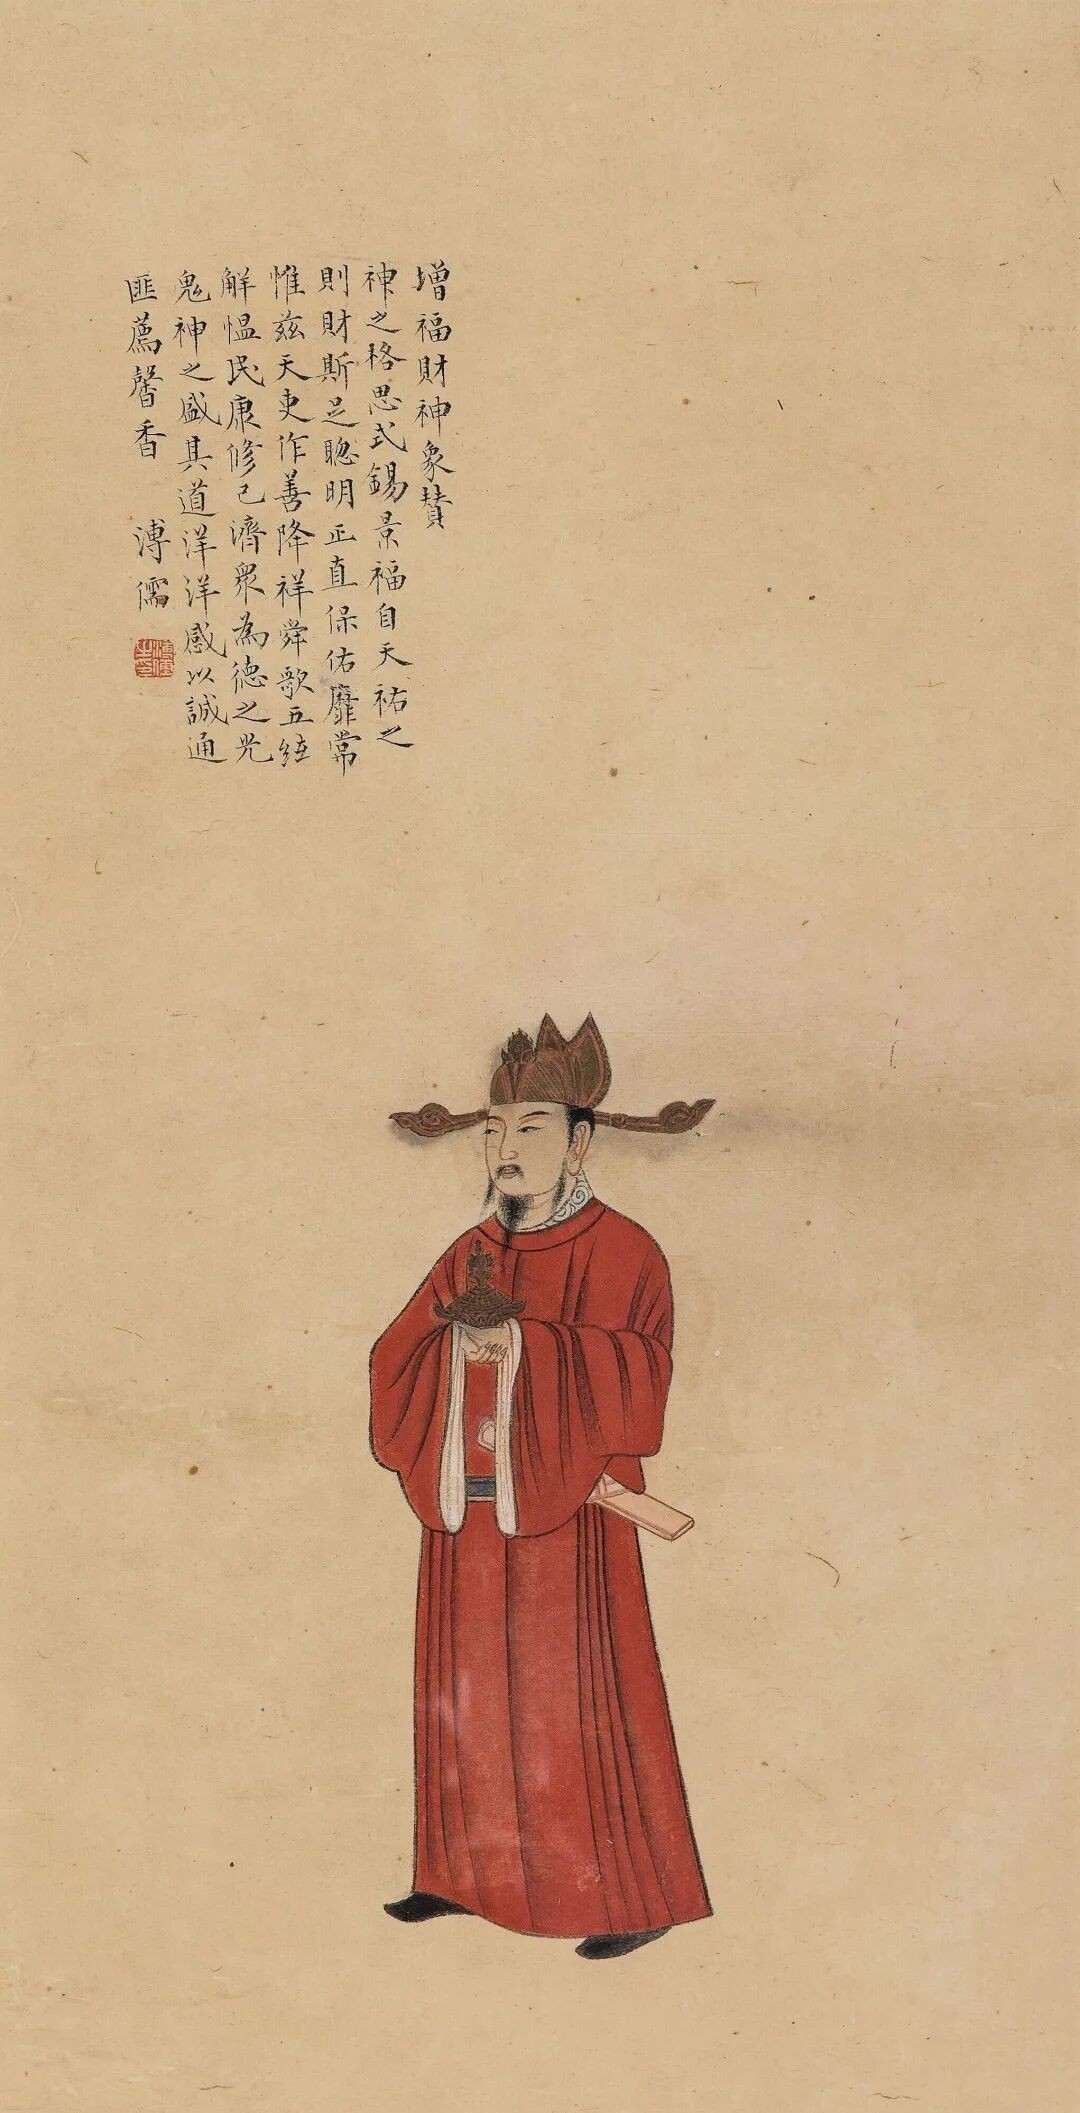 增福財神象賛
神之格思式錫景福自天祐之
則財斯足聰明正直保佑靡常
惟茲天吏作善降祥舜歌五絃
解愠民康修己濟衆為德之光
鬼神之盛其道洋洋感以誠通
匪薦馨香 溥儒